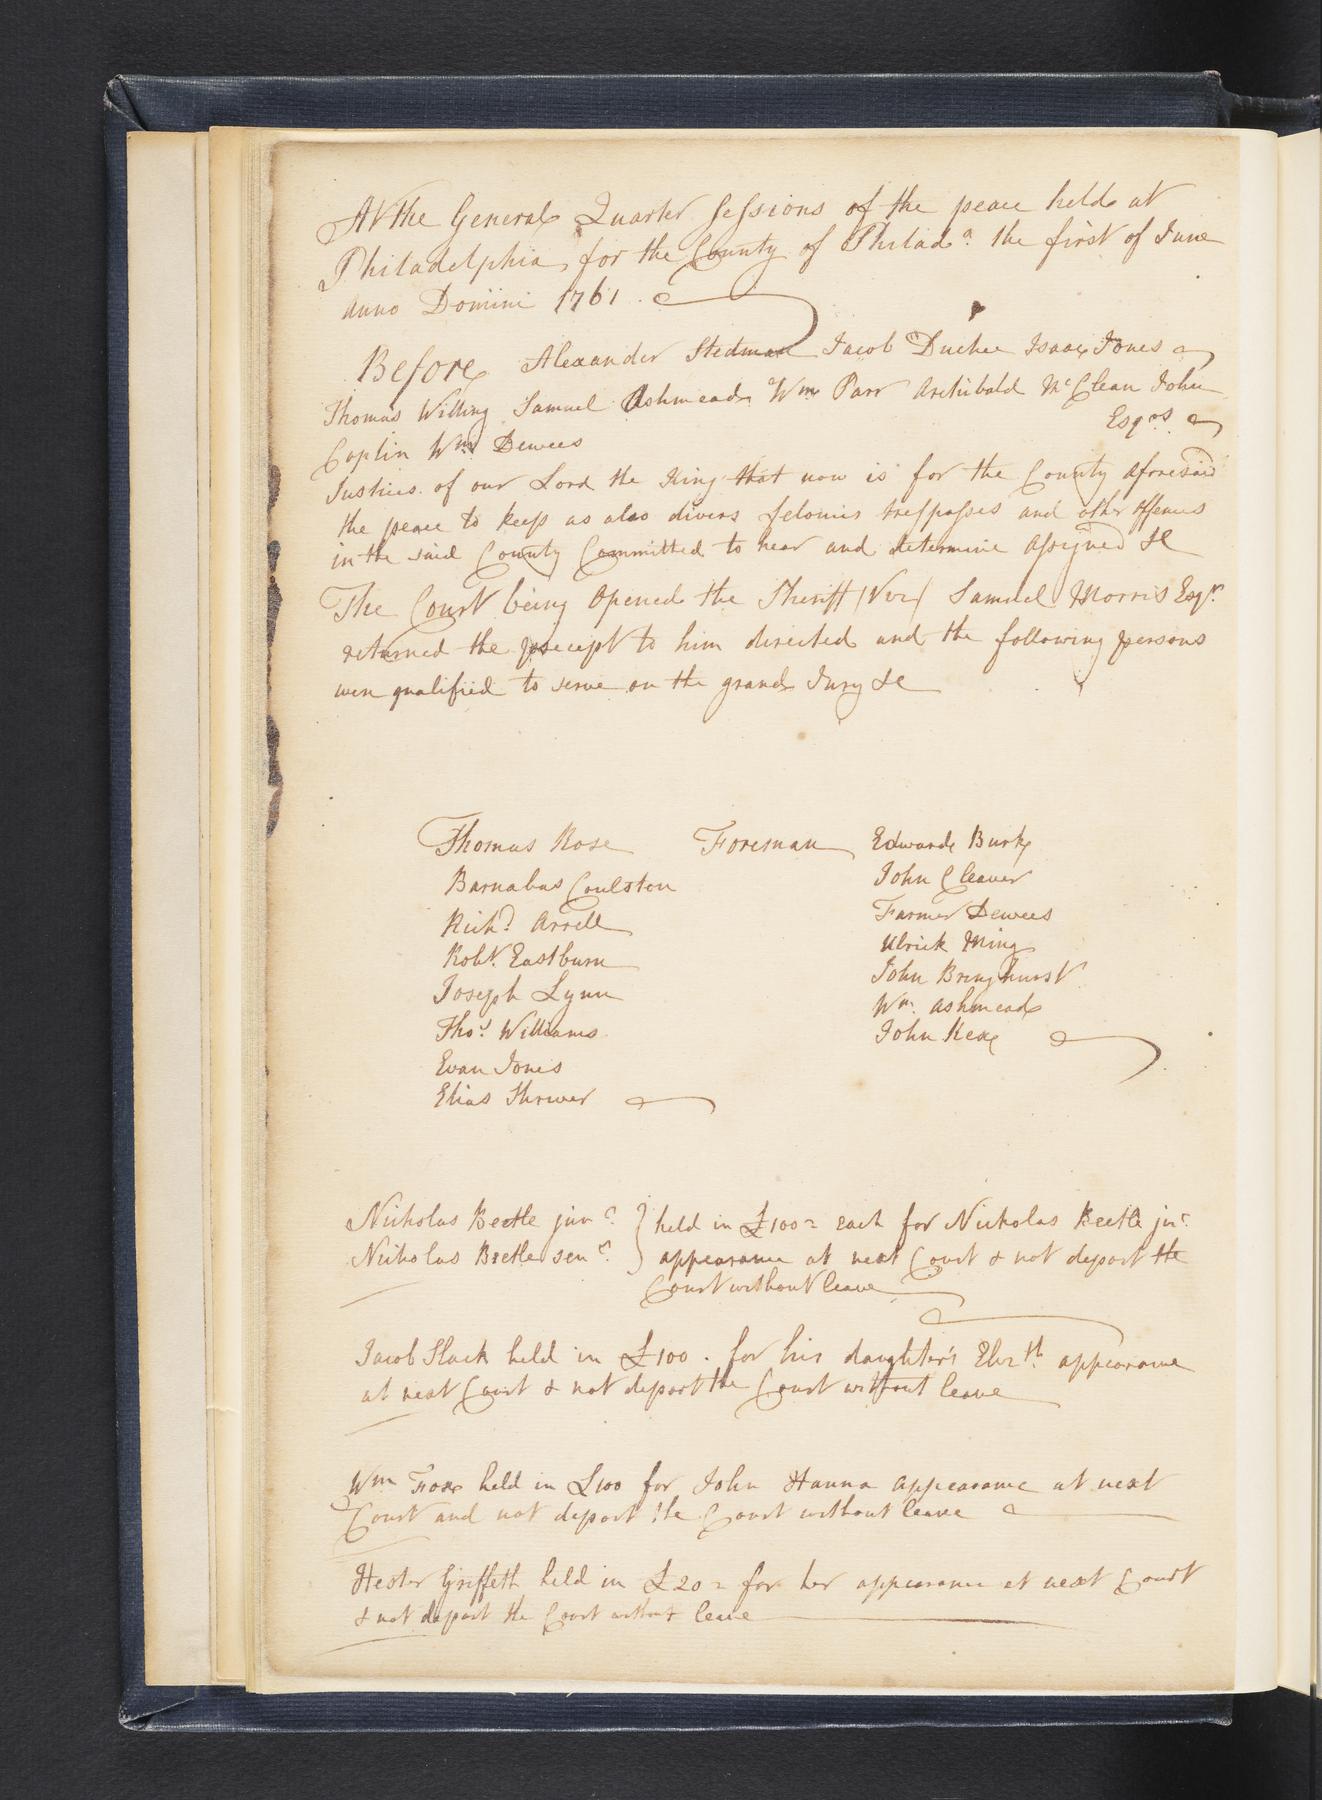 At the General Quarter Sessions of the peace held at
Philadelphia, for the County of Philada. the first of June
Anno Domini 1761.
Before Alexander Stedman Jacob Duchee Isaac Jones
Thomas Willing Samuel Ashmead Wm Parr Archibald McClean John
Esqrs.
Coplin Wm. Dewees
Justices of our Lord the King that now is for the County aforesaid
the peace to keep as also divers felonies tresspasses and other offences
in the said County Committed to hear and determine Assigned &c
The Court being Opened the Sheriff (Viz) Samuel Morris Esqr.
returned the precept to him directed and the following persons
were qualified to serve on the grand Jury &c
Thomas Rose Foreman
Barnabas Coulston
Richd. Arrell
Robt. Eastburn
Joseph Lynn
Thos. Williams
Evan Jones
Elias Thrower
Edward Burk
John Cleaver
Farmer Dewees
Ulrick Ming
John Bringhurst
Wm. Ashmead
John Keax
Nicholas Beetle junr. } held in £100= each for Nicholas Beetle jnr.
Nicholas Beetle senr. } appearance at next Court & not depart the
Court without leave
Jacob Slack held in £100. for his daughter's Elizth. appearance
at next Court & not depart the Court without leave
Wm Fox held in £100 for John Hanna appearance at next
Court and not depart the Court without leave
Hester Griffeth held in £20= for her appearance at next Court
& not depart the Court without leave